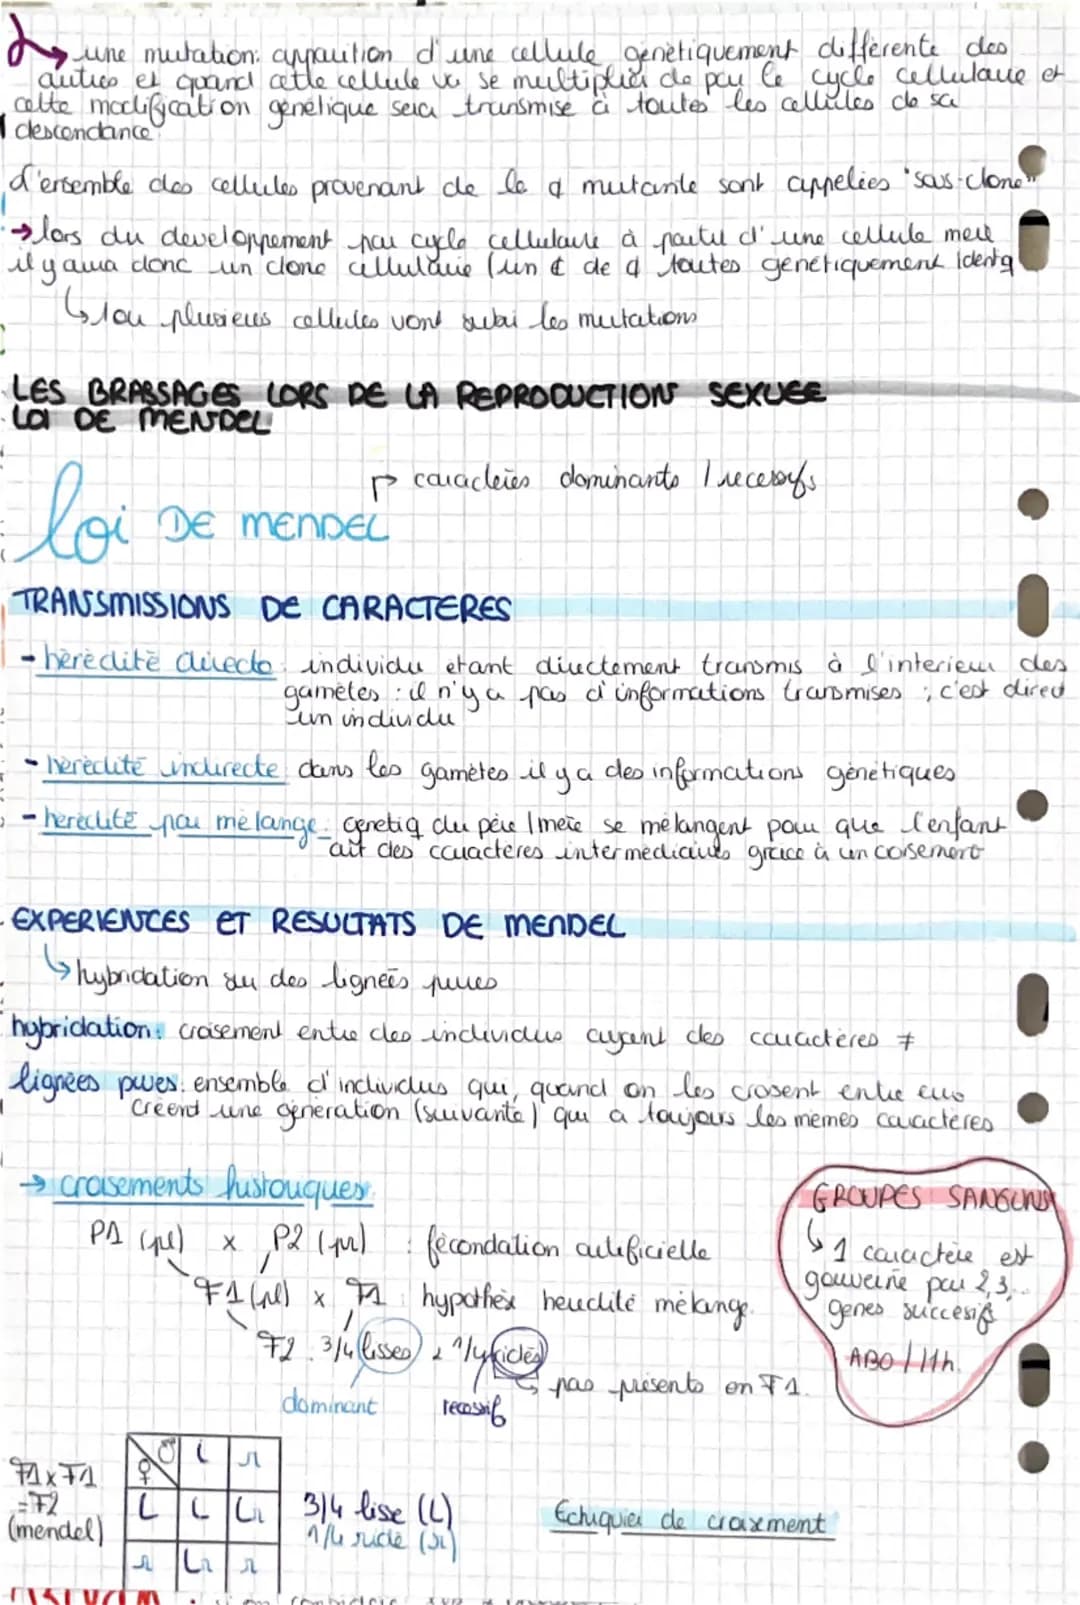 ↳ une mutation: apparition d'une cellule génétiquement différente des
autres et quand cette cellule va se multiplier de par le cycle cellulaire et
cette modification génétique sera transmise à toutes les cellules de sa
descendance
L'ensemble des cellules provenant de la ¢ mutante sont appelées "sous-clone"
→ lors du développement par cycle cellulaire à partir d'une cellule mère
il y aura donc un clone cellulaire (un € de ¢ toutes génétiquement identq
↳ 1 ou plusieurs cellules vont subir les mutations
LES BRASSAGES LORS DE LA REPRODUCTION SEXUEE
LOI DE MENDEL
↱ caractères dominants / recessifs
loi DE MENDEL
TRANSMISSIONS DE CARACTERES
- hérédité directe: individu étant directement transmis à l'interieur des
gamètes : il n'y a pas d'informations transmises ; c'est direct
un individu
- hérédité indirecte: dans les gamètes il y a des informations génétiques
- hérédité par mélange: genetiq du père / mère se mélangent pour que l'enfant
ait des caractères intermédiaires grâce à un croisement
EXPERIENCES ET RESULTATS DE MENDEL
↳ hybridation sur des lignées pures
hybridation: croisement entre des individus ayant des caractères ≠
lignées pures: ensemble d'individus qui, quand on les croisent entre eux
créent une génération (suivante) qui a toujours les mêmes caractères
→ croisements historiques
P1 (pl) x P2 (pr) : fécondation artificielle
F1 (pl) x F1 : hypothèse herudité mélange.
F2 : 3/4 lisses 1/4 ridés
↳ pas présents en F1.
dominant recessif
GROUPES SANGUINS
↳ 1 caractère est
gouverné par 2,3,..
genes succesifs
ABO / Hh.
F1 x F1
= F2
(mendel)
♂ L r
♀
L L Lr
r Lr r
3/4 lisse (L)
1/4 ridé (r)
Echiquier de croisement